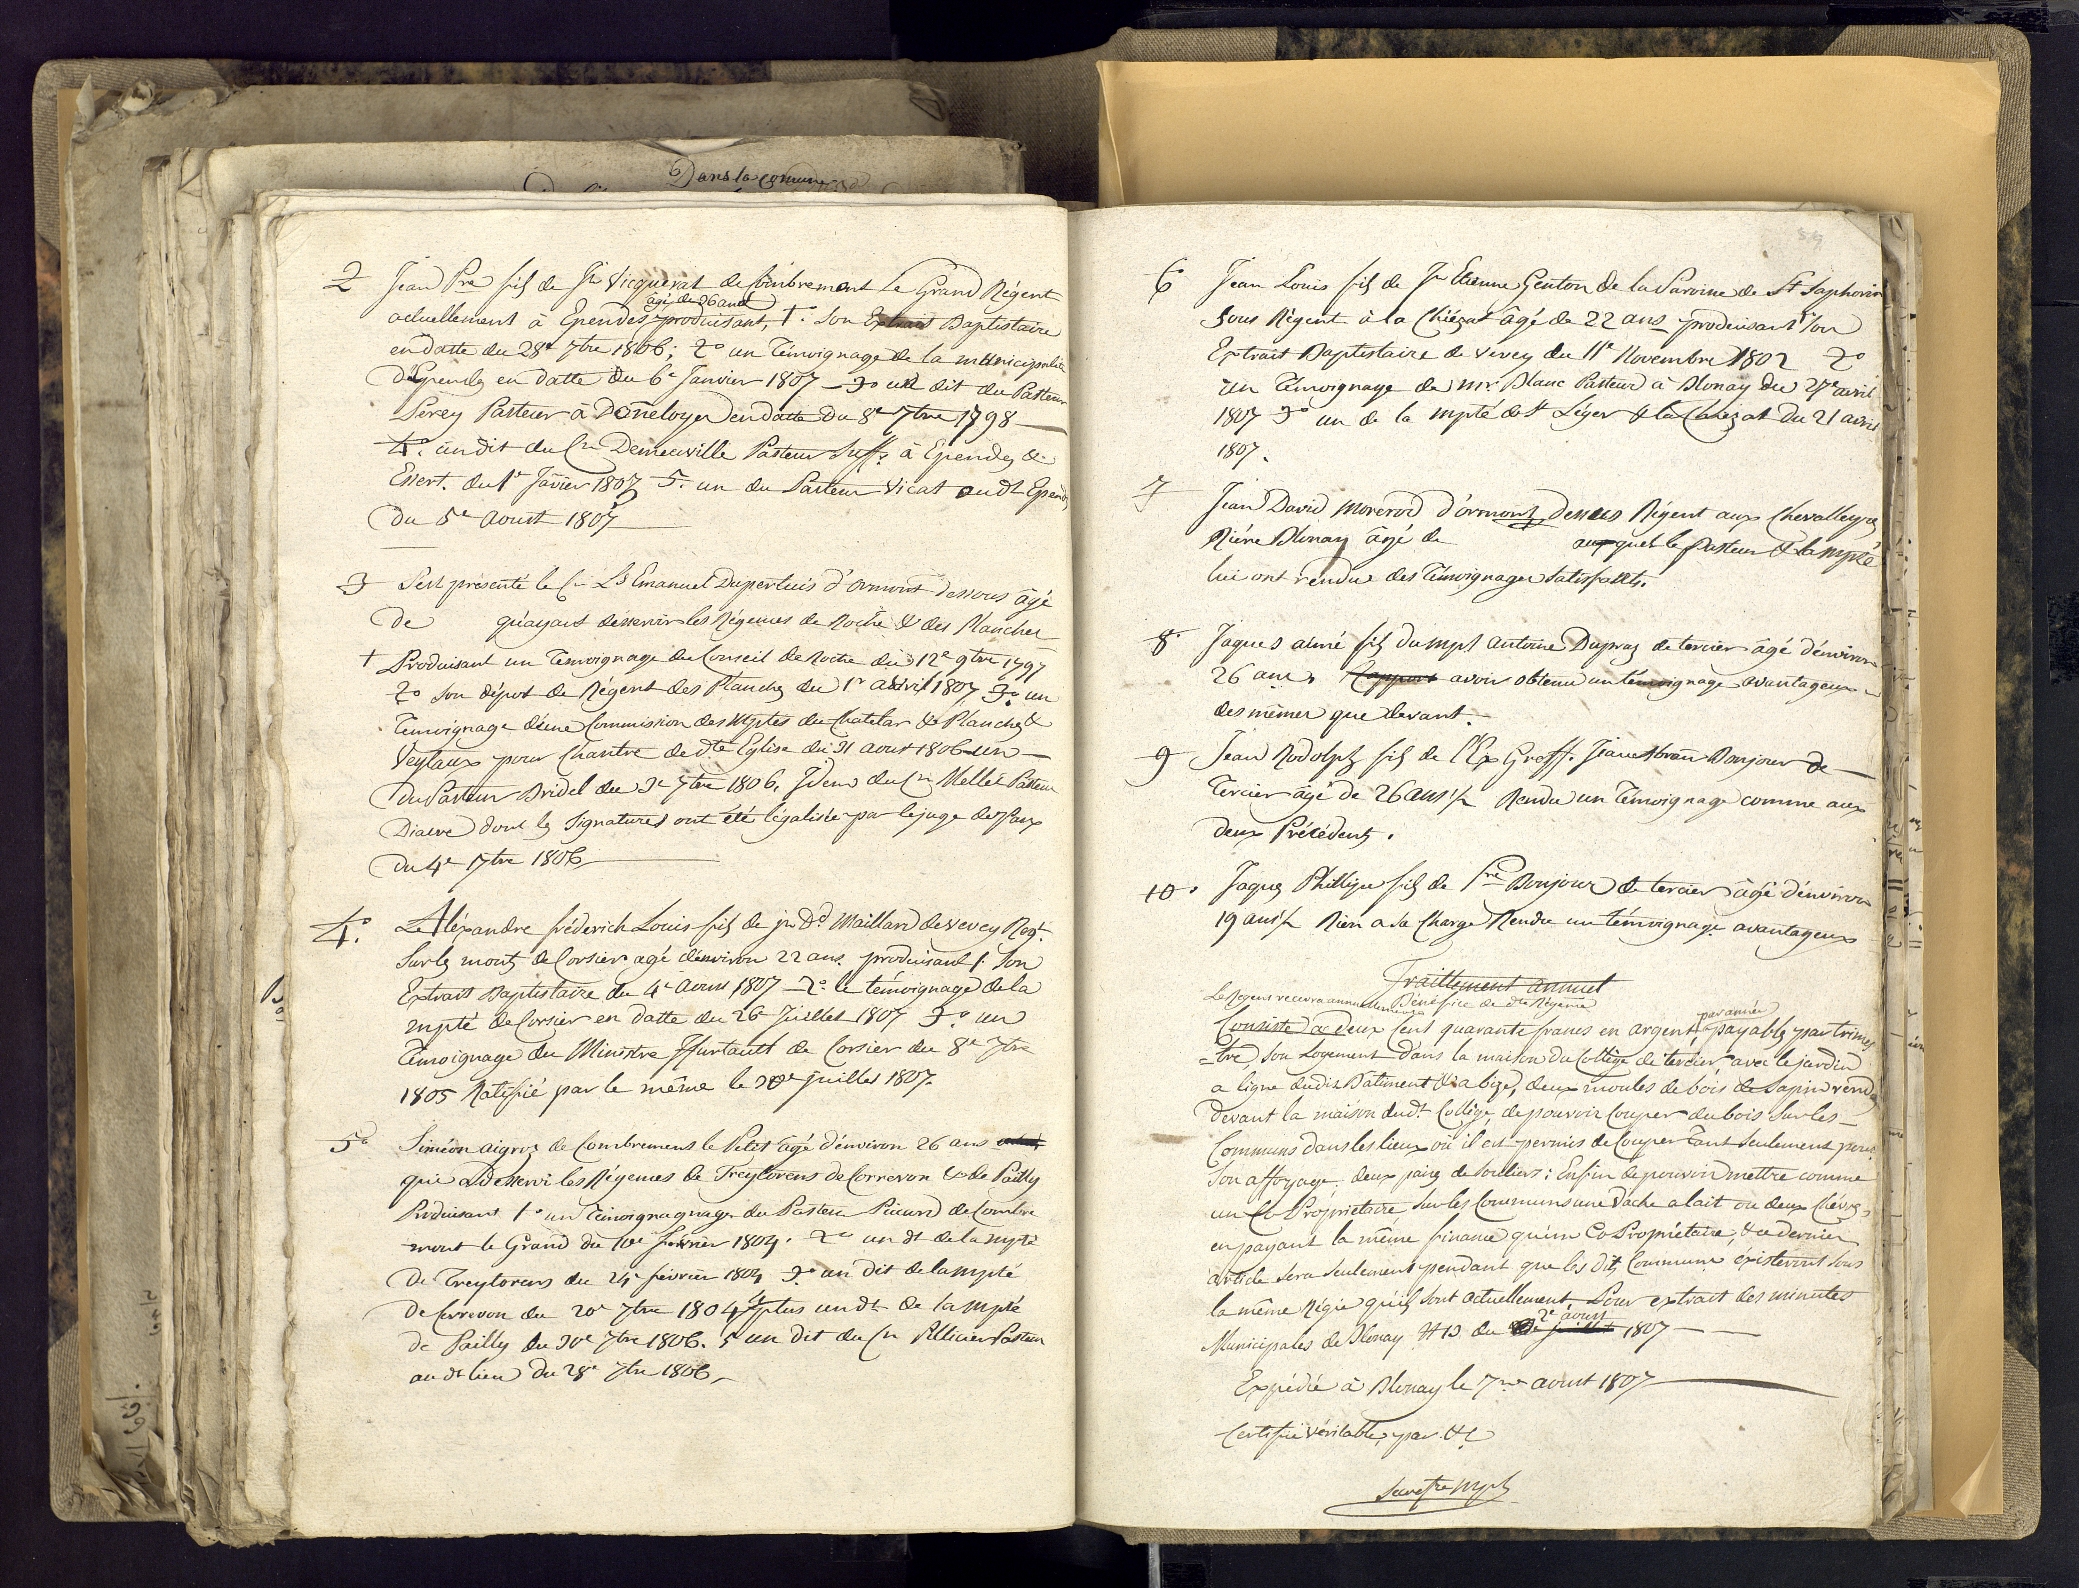 Dans la comune
2 Jean Pre fils de Jn Vicquerat de Combremont Le Grand Régent
âgé de 26 ans
actuellement à Ependes produisant, 1°. Son Extrait Baptistaire
en datte du 28e 7bre 1806; 2° un Témoignage de la municipalité
d'Ependes en datte du 6e Janvier 1807 — 3° un dit du Pasteur
Perey Pasteur à Donneloye en datte du 8e 7bre 1798 —
4°. un dit du Cn Demeuville Pasteur Suff. à Ependes &
Essert. du 1r Janvier 1807 5°. un du Pasteur Vicat audt Ependes
Du 5e Aoust 1807
3 S'est présenté le Cn Ls Emanuel Dupertuis d'ormont dessous âgé
de qu'ayant desservir les Régences de Roche & des Planches
+ Produisant un Temoignage du Conseil de Roche du 12e 9bre 1797
2° Son dépot de Régent des Planches du 1r avril 1807, 3° un
Témoignage d'une Commission des Mptés du Chatelar & Planches &
Veytaux pour Chantre de dte Eglise du 31 aout 1806 un —
Du Pasteur Bridel du 3e 7bre 1806, Idem du Cn Mellet Pasteur
Diacre dont les Signatures ont été légalisée par le juge de Paix
du 4e 7bre 1806
4°. Alexandre fréderich Louis fils de jn Dd Maillard de Vevey Regt.
Sur les monts de Corsier agé d'environ 22 ans. produisant 1° Son
Extrait Baptistaire du 4e Aoust 1807 — 2°. le témoignage de la
mpté de Corsier en datte du 26e Juillet 1807 3°. un
Témoignage du Ministre Curtault de Corsier du 8e 7bre
1805 Ratifié par le même le 30e juillet 1807.
5° Siméon aigroz de Combremont le Petit âgé d'environ 26 ans
qui a desservi les Régences de Treytorens de Correvon & de Pailly
Produisant 1° un Témoignagnage du Pasteur Piccard de Combre
mont le Grand du 10e février 1804. 2° un dt de la mpté
De Treytorens du 24e février 1804 3° un dit de la mpté
de Correvon du 20e 7bre 1804 4° plus un dt de la mpté
de Pailly du 30e 7bre 1806. 5° un dit du Cn Pellicier Pasteur
au dt lieu du 28e 7bre 1806
6 Jean Louis fils de Jn Etienne Genton de la Paroine de St Saphorin
Sous Régent à la Chiézaz âgé de 22 ans produisant 1° Son
Extrait Baptistaire de Vevey du 11e Novembre 1802 2°
un Témoignage de Mr. Blanc Pasteur à Blonay du 27e avril
1807 3° un de la mpté de St Léger & la Chiezaz du 21 avril
1807.
7 Jean David Morerod d'ormont dessus Régent aux Chevalleyres
Rière Blonay âgé de auxquels le Pasteur & la mpté
lui ont rendu des Témoignages satisfaits.
8° Jaques aimé fils du mpl Antoine Dupraz de tercier âgé d'environ
26 ans, Rapport avoir obtenu un témoignage avantageux
des mêmes que devant.
9 Jean Rodolph fils de l'Ex Greff. Jean Abram Bonjour de —
Tercier âgé de 26 ans 1/2 Rendu un Témoignage comme aux
deux Précédents.
10° Jaques Phillipe fils de Pre Bonjour de tercier âgé d'environ
19 ans 1/2 Rien a sa Charge Rendu un témoignage avantageux
Traittement annuel
Le Régent recevra annuellement Bénéfice de dte Régence
par année
Consiste a deux Cent quarante francs en argent, payables par trimes
=tre, son Logement dans la maison du Collège de tercier avec le jardin
a ligne dudit Batiment & a bize, deux moules de bois de Sapin rendu
Devant la maison dudt Collège, de pouvoir Couper du bois sur les —
Communs dans les lieux où il est permies de Couper tant seulement pour
Son affoyage; deux paires de Souliers: Enfin de pouvoir mettre comme
un Co Propriétaire sur les Communs une Vache a lait ou deux Chévres,
en payant la même finance qu'un Co Propriétaire, & ce dernier
article sera seulement pendant que les dits Communs éxisteront sous
la même Régie qu'ils sont actuellement Pour extrait des minutes
2e aoust
Municipales de Blonay N° 13 du juillet 1807 —
Expédié à Blonay le 7me aoust 1807
Certifié véritable, par &c
Secretre Mpl